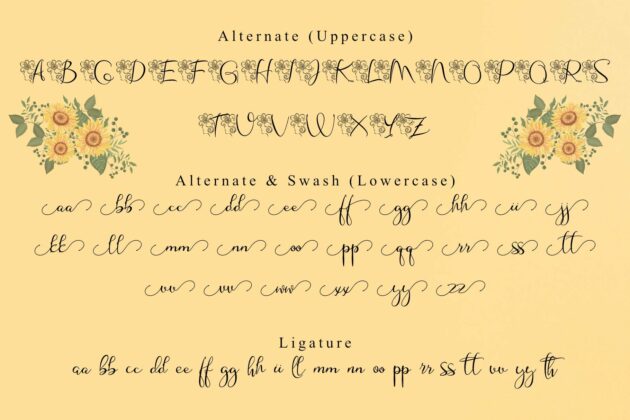 Alternate (Uppercase)
A B C D E F G H I J K L M N O P Q R S
T U V W X Y Z
Alternate & Swash (Lowercase)
aa bb cc dd ee ff gg hh ii jj
kk ll mm nn oo pp qq rr ss tt
uu vv ww xx yy zz
Ligature
aa bb cc dd ee ff gg hh ii ll mm nn oo pp rr ss tt vv yy th